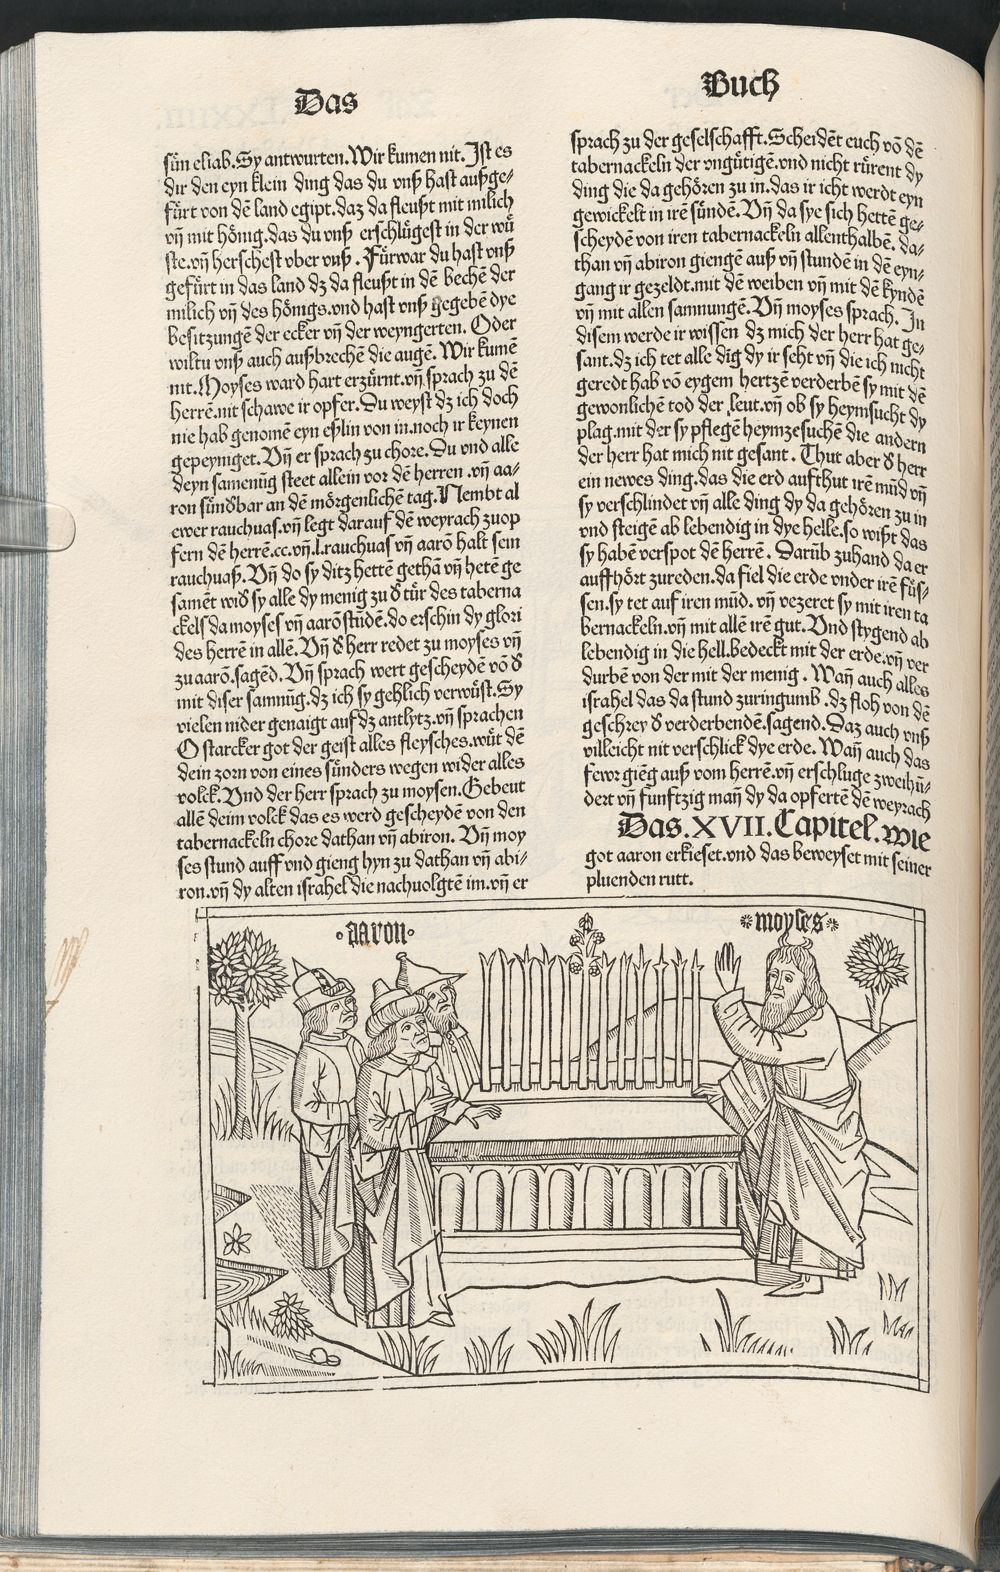 Das
Buch
sün eliab. Sy antwurten. Wir kumen nit. Ist es
dir den eyn klein ding das du vnß hast außge⸗
fürt von dē land egipt. daz da fleußt mit milich
vn̄ mit hönig. das du vnß erschlügest in der wü
ste. vn̄ herschest vber vnß. Fürwar du hast vnß
gefürt in das land dz da fleußt in dē bechē der
milich vn̄ des hönigs. vnd hast vnß gegebē dye
besitzungē der ecker vn̄ der weyngerten. Oder
wiltu vnß auch außbrechē die augē. Wir kumē
nit. Moyses ward hart erzürnt. vn̄ sprach zu dē
herrē. nit schawe ir opfer. Du weyst dz ich doch
nie hab genomē eyn eslin von in. noch ir keynen
gepeyniget. Vn̄ er sprach zu chore. Du vnd alle
deyn samenūg steet allein vor dē herren. vn̄ aa⸗
ron sünd̕bar an dē mörgenlichē tag. Nembt al
ewer rauchuas. vn̄ legt darauf dē weyrach zuop
fern dē herrē. cc. vn̄. l. rauchuas vn̄ aarō halt sein
rauchuaß. Vn̄ do sy ditz hettē gethā vn̄ hetē ge
samēt wid̕ sy alle dy menig zu d̕ tür des taberna
ckels da moyses vn̄ aarō stūdē. do erschin dy glori
des herrē in allē. Vn̄ d̕ herr redet zu moyses vn̄
zu aarō. sagēd. Vn̄ sprach wert gescheydē vō d̕
mit diser samnūg. dz ich sy gehlich verwüst. Sy
vielen nider genaigt auf dz antlytz. vn̄ sprachen
O starcker got der geist alles fleysches. wüt dē
dein zorn von eines sünders wegen wider alles
volck. Vnd der herr sprach zu moysen. Gebeut
allē deim volck das es werd gescheydē von den
tabernackeln chore dathan vn̄ abiron. Vn̄ moy
ses stund auff vnd gieng hyn zu dathan vn̄ abi⸗
ron. vn̄ dy alten israhel die nachuolgtē im. vn̄ er
sprach zu der geselschafft. Scheidēt euch vō dē
tabernackeln der vngütigē. vnd nicht rürent dy
ding die da gehören zu in. das ir icht werdt eyn
gewickelt in irē sündē. Vn̄ da sye sich hettē ge⸗
scheydē von iren tabernackeln allenthalbē. da⸗
than vn̄ abiron giengē auß vn̄ stundē in dē eyn⸗
gang ir gezeldt. mit dē weiben vn̄ mit dē kyndē
vn̄ mit allen samnungē. Vn̄ moyses sprach. In
disem werde ir wissen dz mich der herr hat ge⸗
sant. dz ich tet alle dīg dy ir seht vn̄ die ich nicht
geredt hab vō eygem hertzē verderbē sy mit dē
gewonlichē tod der leut. vn̄ ob sy heymsucht dy
plag. mit der sy pflegē heymzesuchē die andern
der herr hat mich nit gesant. Thut aber d̕ herr
ein newes ding. das die erd aufthut irē mūd vn̄
sy verschlindet vn̄ alle ding dy da gehören zu in
vnd steigē ab lebendig in dye helle. so wißt das
sy habē verspot dē herrē. Darūb zuhand da er
auffhört zureden. da fiel die erde vnder irē füs⸗
sen. sy tet auf iren mūd. vn̄ vezeret sy mit iren ta
bernackeln. vn̄ mit allē irē gut. Vnd stygend ab
lebendig in die hell. bedeckt mit der erde. vn̄ ver
durbē von der mit der menig. Wan̄ auch alles
israhel das da stund zuringumb. dz floh von dē
geschrey d̕ verderbendē. sagend. Daz auch vnß
villeicht nit verschlick dye erde. Wan̄ auch das
fewr giēg auß vom herrē. vn̄ erschluge zweihū⸗
dert vn̄ funftzig man̄ dy da opfertē dē weyrach
Das. XVII. Capitel. wie
got aaron erkieset. vnd das beweyset mit seiner
pluenden rutt.
aaron
moyses